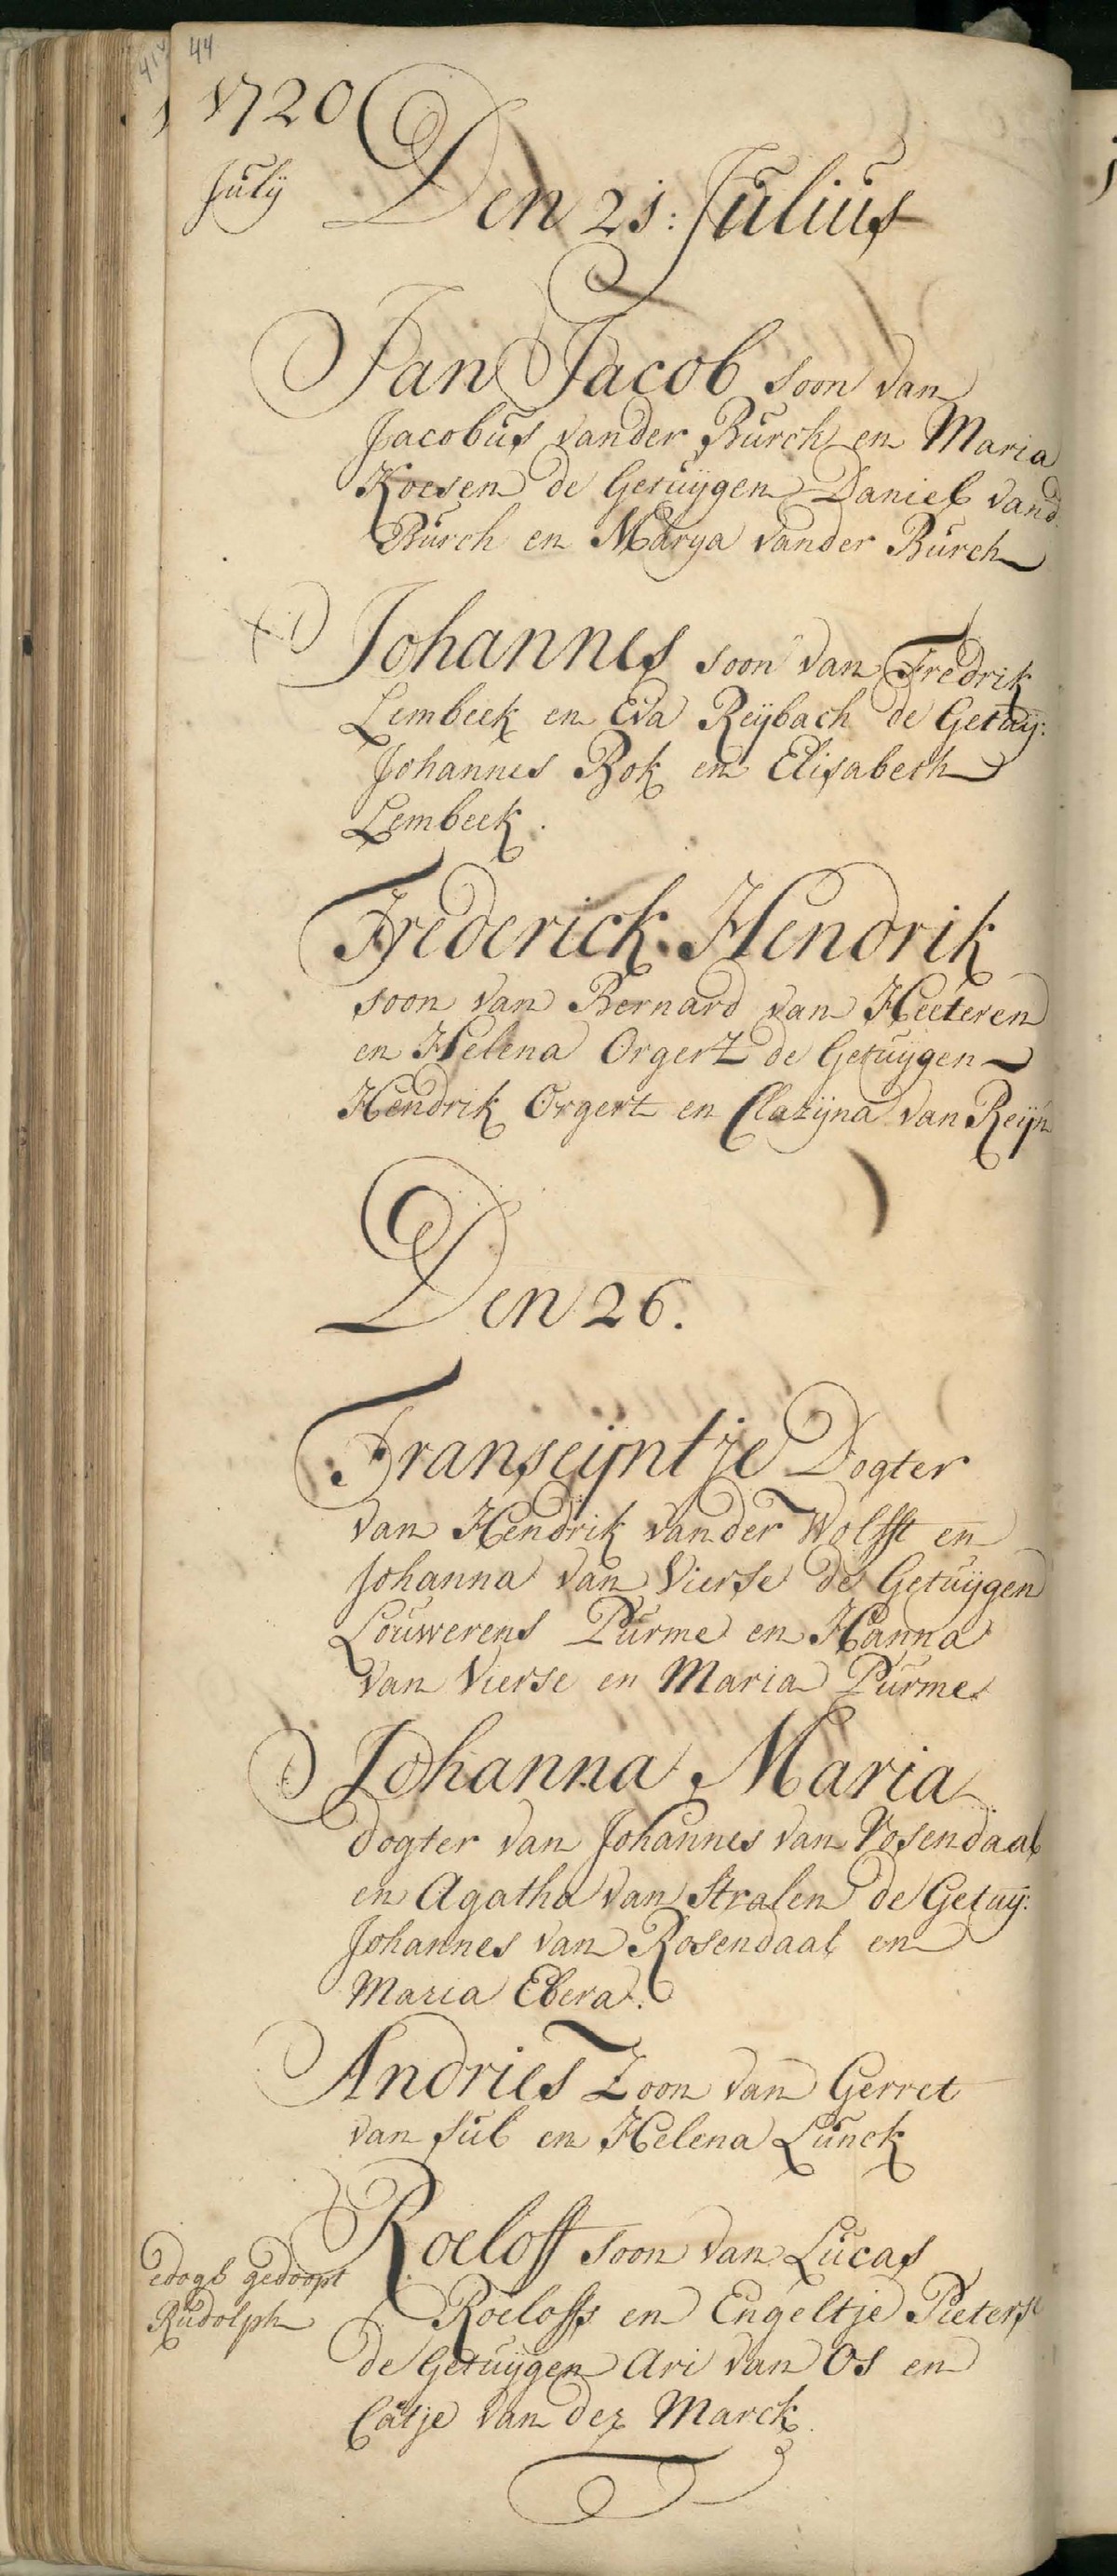 44
1720
Julij
Den 21: Julius
Jan Jacob soon van
Jacobus vander Burch en Maria
Koesen de Getuijgen Daniel vand
Burch en Marya vander Burch
Johannes soon van Fredrik
Lembeek en Eva Reijbach de Getuij:
Johannes Bok en Elisabeth
Lembeek.
Frederick Hendrik
soon van Bernard van Heeteren
en Helena Orgert de Getuijgen
Hendrik Orgert en Clazijna van Reijn
Den 26.
Franseijntje Dogter
van Hendrik vander Wolfft en
Johanna van Vierse de Getuijgen
Louwerens Purme en Hanna
van Vierse en Maria Purme
Johanna Maria
dogter van Johannes van Rosendaal
en Agatha van Stralen de Getuij:
Johannes van Rosendaal en
Maria Ebera.
Andries Zoon van Gerret
van Sul en Helena Lunck
Roeloff soon van Lucas
edogh gedoopt
Rudolph
Roeloffs en Engeltje Pieters
de Getuijgen Ari van Os en
Catje van der Marck.